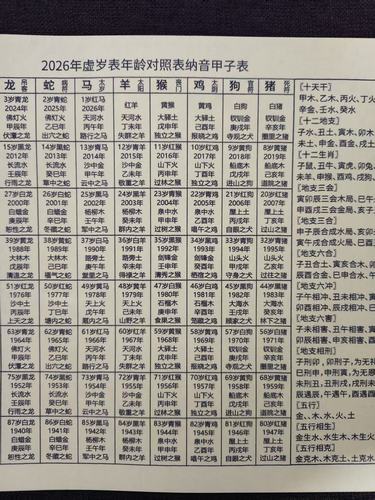 2026年虚岁表年龄对照表纳音甲子表
龙 吊客 蛇 病符 马 太岁 羊 太阳 猴 丧门 鸡 狗 官符 猪
3岁青龙 2岁青蛇 1岁红马 红羊 黄猴 黄鸡 白狗 白猪
2024年 2025年 2026年
佛灯火 佛灯火 天河水 天河水 大驿土 大驿土 钗钏金 钗钏金
甲辰年 乙巳年 丙午年 丁未年 戊申年 己酉年 庚戌年 辛亥年
伏潭之龙 出穴之蛇 行路之马 失群之羊 独立之猴 报晓之鸡 寺观之狗
15岁黑龙 14岁黑蛇 13岁青马 12岁青羊 11岁红猴 10岁红鸡 9岁黄狗 8岁黄猪
2012年 2013年 2014年 2015年 2016年 2017年 2018年 2019年
长流水 长流水 沙中金 沙中金 山下火 山下火 平地木 平地木
壬辰年 癸巳年 甲午年 乙未年 丙申年 丁酉年 戊戌年 己亥年
行雨之龙 草中之蛇 云中之马
27岁白龙 26岁白蛇 25岁黑马 24岁黑羊 23岁青猴 22岁青鸡 21岁红狗 20岁红猪
2000年 2001年 2002年 2003年 2004年 2005年 2006年 2007年
白蜡金 白蜡金 杨柳木 杨柳木 泉中水 泉中水 屋上土 屋上土
庚辰年 辛巳年 壬午年 癸未年 甲申年 乙酉年 丙戌年 丁亥年
恕性之龙 冬藏之蛇 军中之马 群内之羊 过树之猴 唱午之鸡 自眠之狗 过山之猪
39岁黄龙 38岁黄蛇 37岁白马 36岁白羊 35岁黑猴 34岁黑鸡 33岁青狗 32岁青猪
1988年 1989年 1990年 1991年 1992年 1993年 1994年 1995年
大林木 大林木 路旁土 路旁土 剑锋金 剑锋金 山头火 山头火
戊辰年 己巳年 庚午年 辛未年 壬申年 癸酉年 甲戌年 乙亥年
清温之龙 福气之蛇 堂里之马 得禄之羊 清秀之猴 楼宿之鸡 守身之狗 过往之猪
51岁红龙 50岁红蛇 49岁黄马 48岁黄羊 47岁白猴 46岁白鸡 45岁黑狗 44岁黑猪
1976年 1977年 1978年 1979年 1980年 1981年 1982年 1983年
沙中土 沙中土 天上火 天上火 石榴木 石榴木 大海水 大海水
丙辰年 丁巳年 戊午年 己未年 庚申年 辛酉年 壬戌年 癸亥年
天上之龙 塘内之蛇 食果之猴
63岁青龙 62岁青蛇 61岁红马 60岁红羊 59岁黄猴 58岁黄鸡 57岁白狗 56岁白猪
1964年 1965年 1966年 1967年 1968年 1969年 1970年 1971年
佛灯火 佛灯火 天河水 天河水 大驿土 大驿土 钗钏金 钗钏金
甲辰年 乙巳年 丙午年 丁未年 戊申年 己酉年 庚戌年 辛亥年
伏潭之龙 出穴之蛇 行路之马 失群之羊 独立之猴 报晓之鸡 寺观之狗
75岁黑龙 74岁黑蛇 73岁青马 72岁青羊 71岁红猴 70岁红鸡 69岁黄狗 68岁黄猪
1952年 1953年 1954年 1955年 1956年 1957年 1958年 1959年
长流水 长流水 沙中金 沙中金 山下火 山下火 平地木 平地木
壬辰年 癸巳年 甲午年 乙未年 丙申年 丁酉年 戊戌年 己亥年
行雨之龙 草中之蛇 云中之马
87岁白龙 86岁白蛇 85岁黑马 84岁黑羊 83岁青猴 82岁青鸡 81岁红狗 80岁红猪
1940年 1941年 1942年 1943年 1944年 1945年 1946年 1947年
白蜡金 白蜡金 杨柳木 杨柳木 泉中水 泉中水 屋上土 屋上土
庚辰年 辛巳年 壬午年 癸未年 甲申年 乙酉年 丙戌年 丁亥年
恕性之龙 冬藏之蛇 军中之马 群内之羊 过树之猴 唱午之鸡 自眠之狗 过山之猪
[十天干]
甲木、乙木、丙火、丁火
辛金、壬水、癸水
[十二地支]
子水、丑土、寅木、卯木
未土、申金、酉金、戌土
[十二生肖]
子鼠、丑牛、寅虎、卯兔
未羊、申猴、酉鸡、戌狗
[地支三会]
寅卯辰三会木局、巳午
[地支三合]
申子辰合成水局、亥卯
寅午戌合成火局、巳酉
[地支六合]
子丑合土、寅亥合木
辰酉合金、巳申合水、午
[地支六冲]
子午相冲、丑未相冲、寅
卯酉相冲、辰戌相冲、巳
[地支六害]
子未相害、丑午相害、寅
卯辰相害、申亥相害、酉
[地支相刑]
子刑卯、卯刑子、为无礼
巳刑申、申刑寅、为无恩
未刑丑、丑刑戌、戌刑未
辰遇辰、午遇午、酉遇酉
[五行]
金、木、水、火、土
[五行相生]
金生水、水生木、木生火
[五行相克]
金克木、木克土、土克水